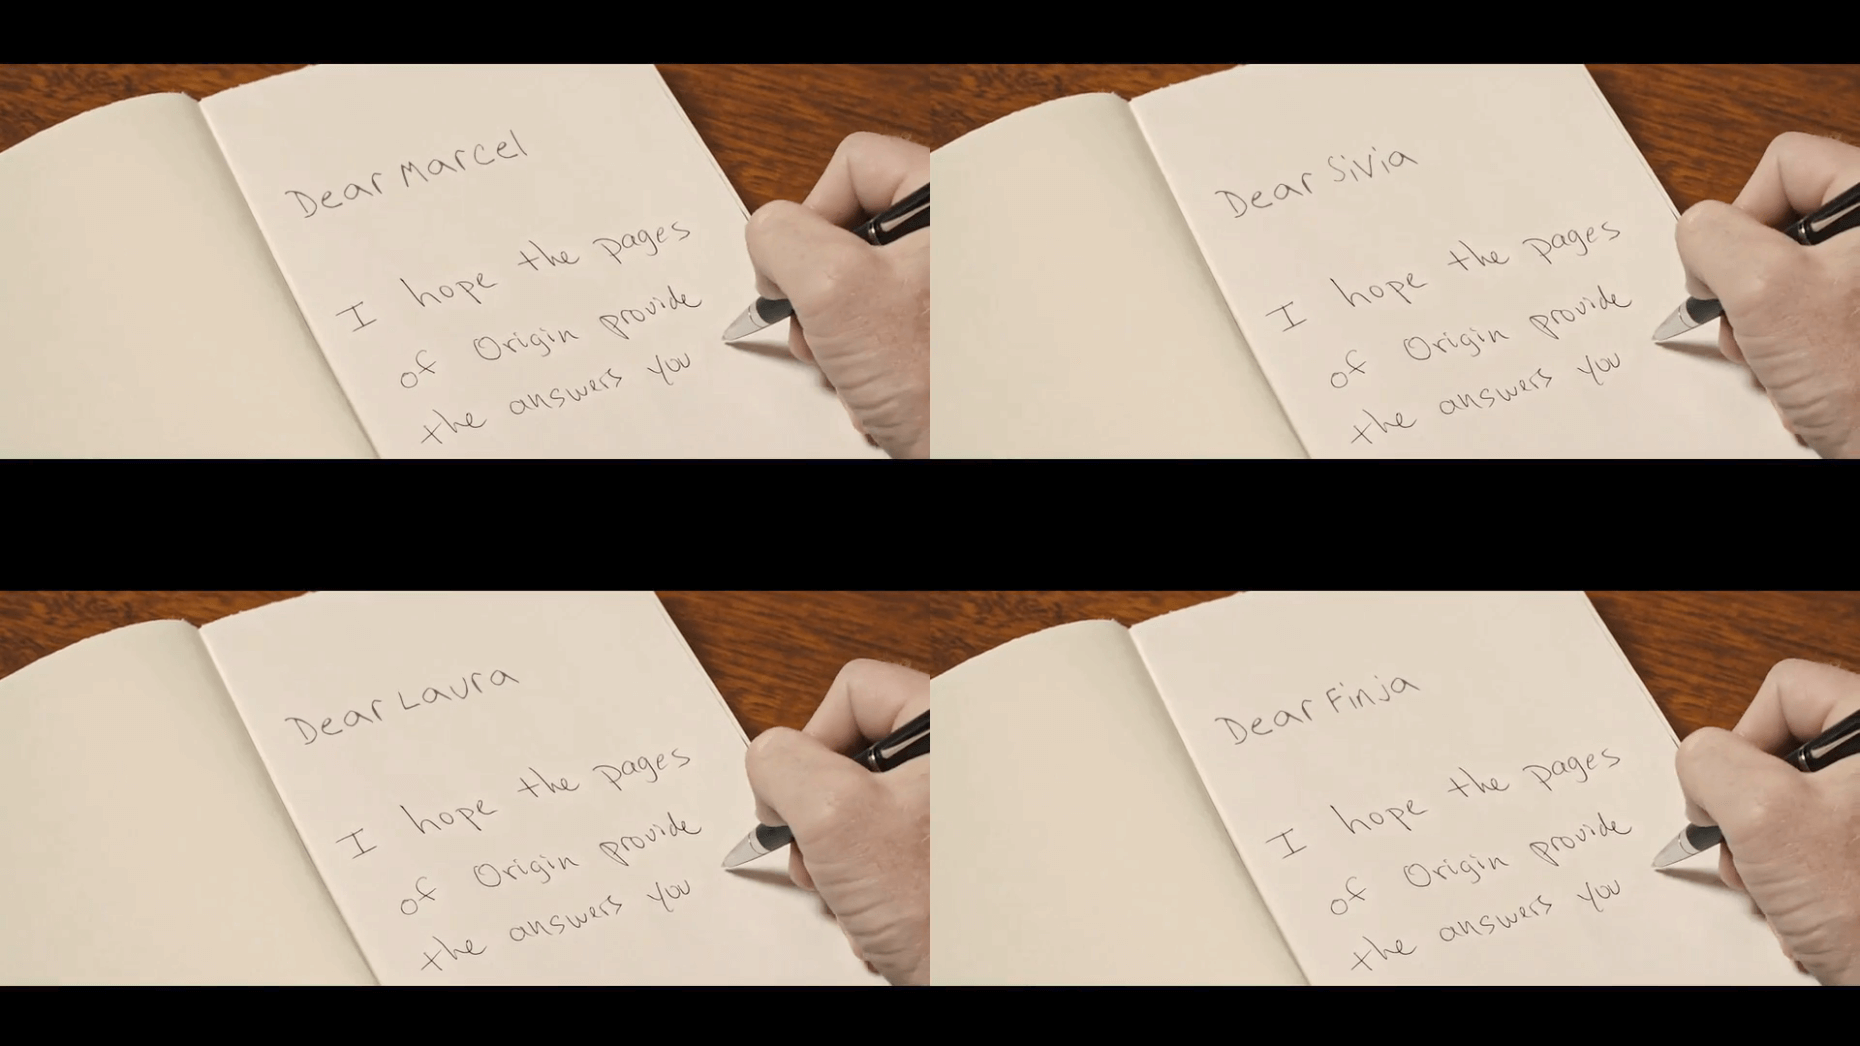 Dear Marcel
I hope the pages
of Origin provide
the answers you
Dear Sivia
I hope the pages
of Origin provide
the answers you
Dear Laura
I hope the pages
of Origin provide
the answers you
Dear Finja
I hope the pages
of Origin provide
the answers you